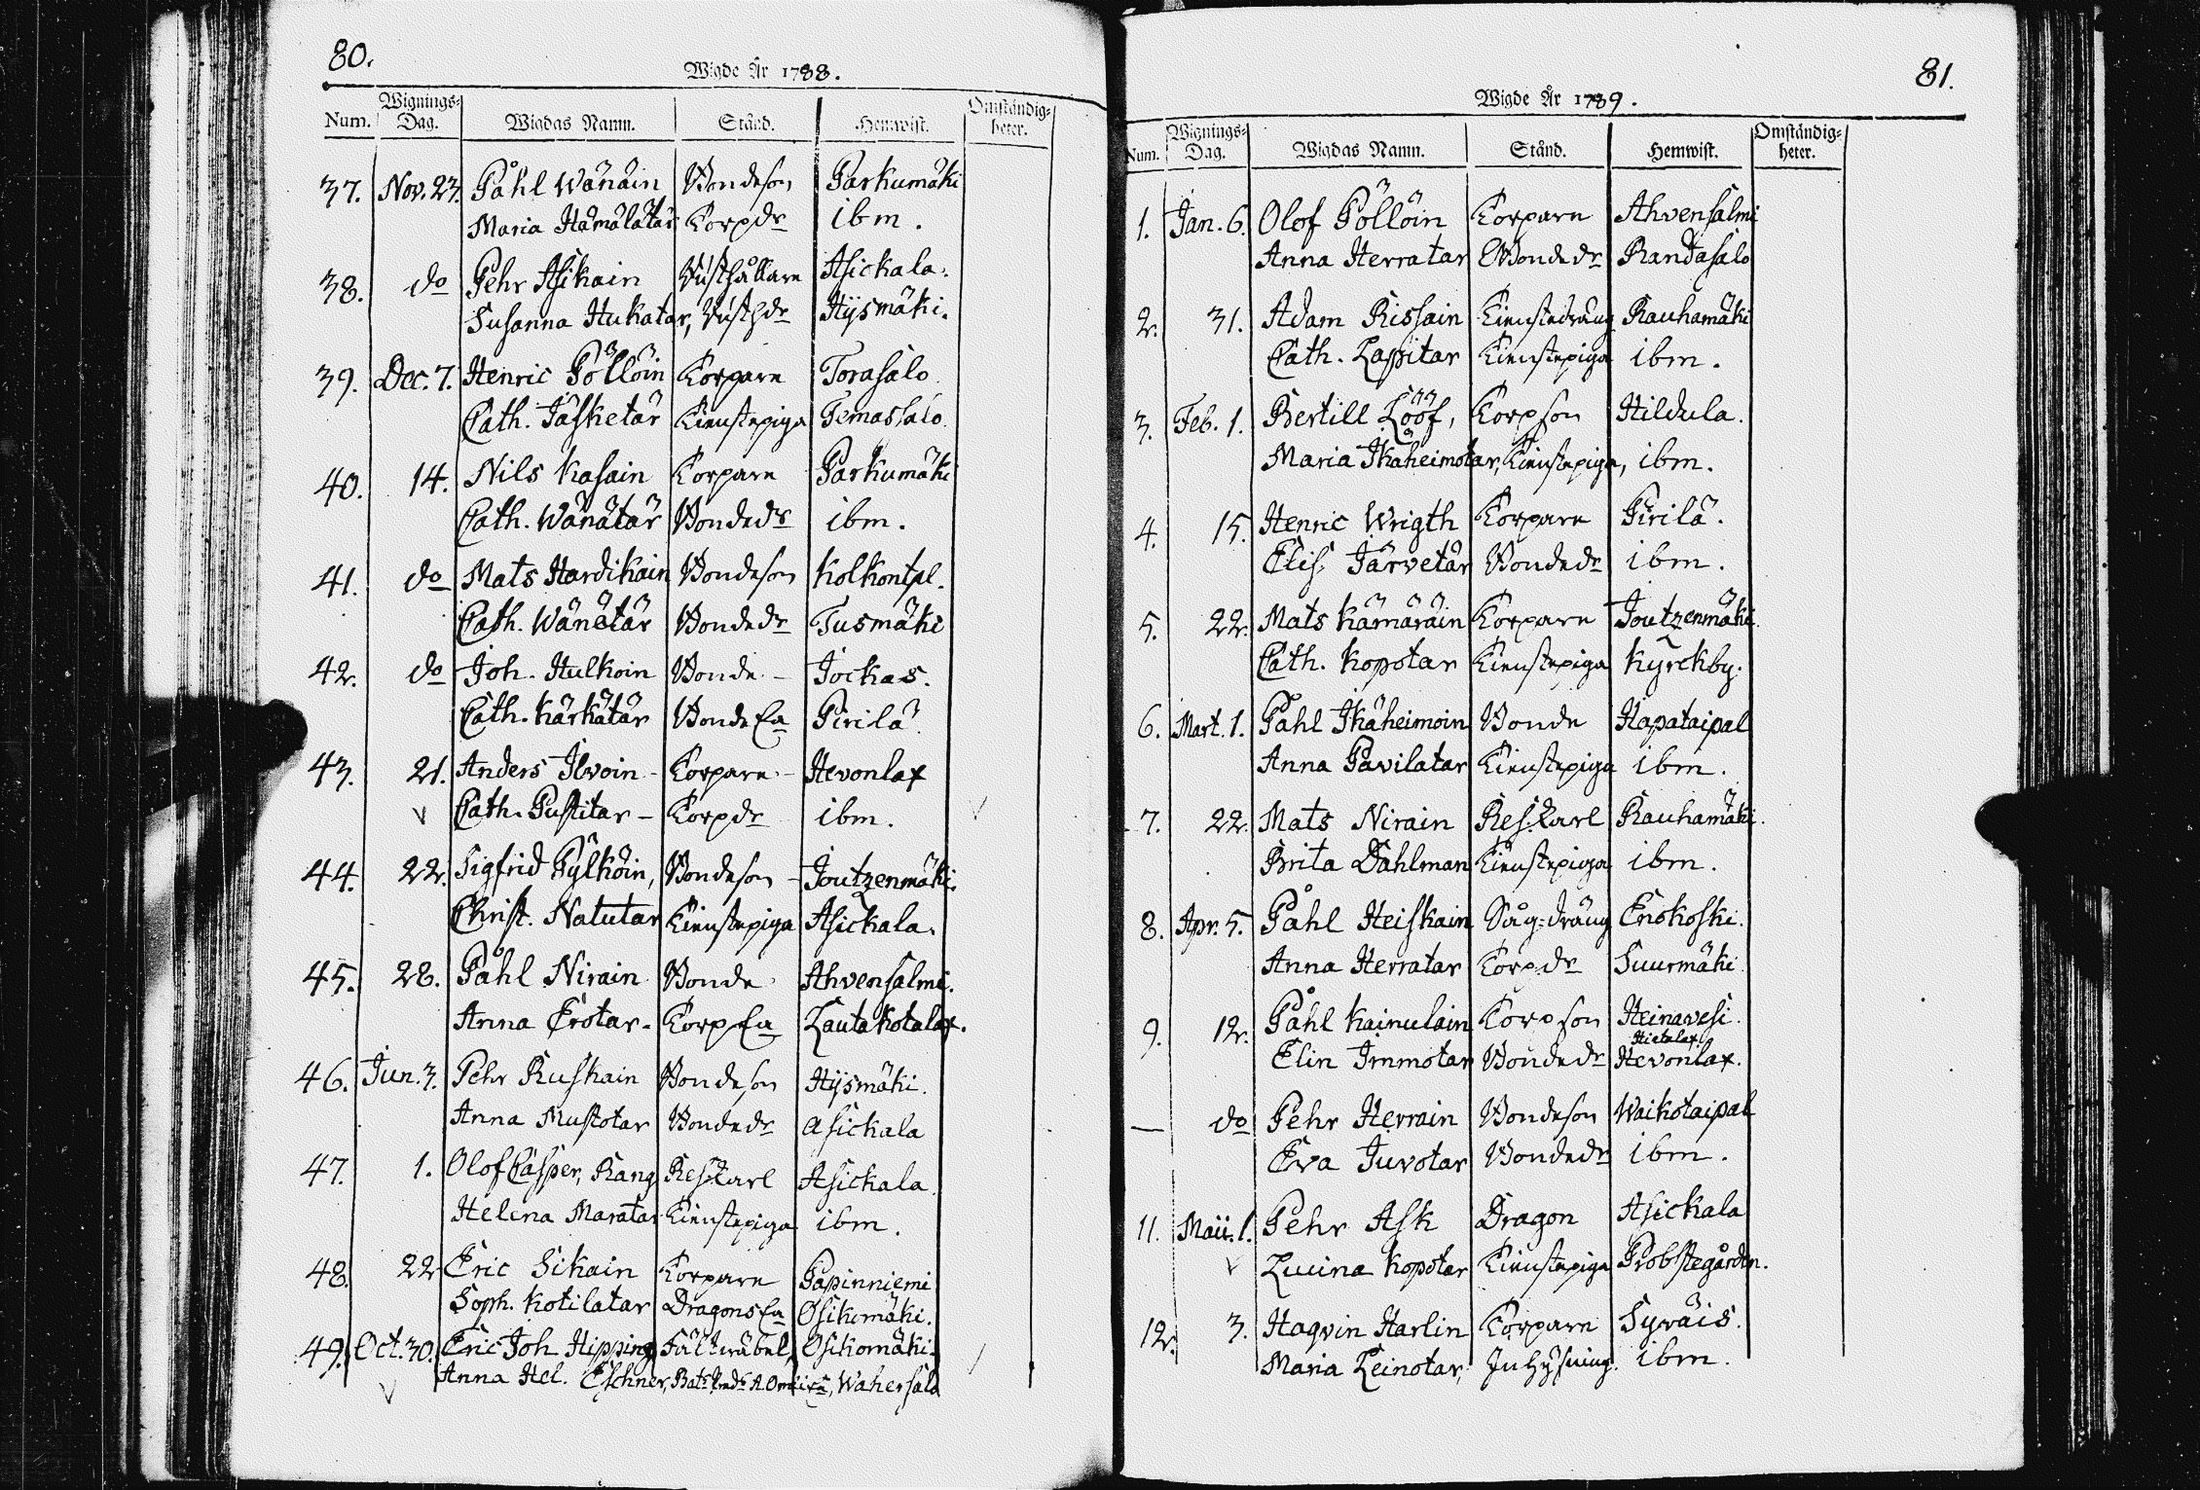 80.
Wigde År 1788.
Num. Wignings-Dag. Wigdas Namn. Stånd. Hemwist. Omständig-heter.
37. Nov. 23. Påhl Wänäin Bondeson Parkumäki
Maria Hämälätär Torpdr ibm.
38. do Pehr Asikain Rusthållare Asickala.
Susanna Hukatar, Rusthdr Hysmäki.
39. Dec. 7. Henric Pöllöin Torpare Torasalo.
Cath. Jäsketär Tienstepiga Temassalo.
40. 14. Nils Kasain Torpare Parkumäki
Cath. Wänätär Bondedr ibm.
41. do Mats Hardikain Bondeson Kolkontpl.
Cath. Wänätär Bondedr Tusmäki
42. do Joh. Hulkoin Bonde - Jockas.
Cath. Kärkätär Bonde Ea Pirilä.
43. 21. Anders Ilvoin - Torpare - Hevonlax
Cath. Pustitar - Torpdr ibm.
44. 22. Sigfrid Pylköin, Bondeson - Joutzenmäki.
Christ. Natutar Tienstepiga Asickala.
45. 28. Påhl Nirain Bonde Ahvensalmi.
Anna Erotar. Torp Ea Lautakotalax.
46. Jun. 3. Pehr Ruskain Bondeson Hysmäki.
Anna Mustotar Bondedr Asickala
47. 1. Olof Casper, Rang Res.karl Asickala.
Helena Maratar Tienstepiga ibm.
48. 22 Eric Sikain Torpare Papinniemi
Soph. Kotilatar Dragons Ea Osikomäki.
49. Oct. 30. Eric Joh. Hipping Fältwäbel, Osikomäki.
Anna Hel. Eschner, Wahersalo
81.
Wigde År 1789.
Num. Wignings-Dag. Wigdas Namn. Stånd. Hemwist. Omständig-heter.
1. Jan. 6. Olof Pöllöin Torpare Ahvensalmi
Anna Herratar Bondedr Randasalo
2. 31. Adam Rissain Tienstedräng Rauhamäki
Cath. Lapitar Tienstepiga ibm.
3. Feb. 1. Bertill Lööf, Torpson Hildula.
Maria Ikäheimotar, Tienstepiga, ibm.
4. 15. Henric Wrigth Torpare Pirilä.
Elis. Järvetär Bondedr ibm.
5. 22. Mats Kämäräin Torpare Joutzenmäki.
Cath. Kopotar Tienstepiga Kyrckby.
6. Mart. 1. Påhl Ikäheimoin Bonde Hapataipal
Anna Pavilatar Tienstepiga ibm.
7. 22. Mats Nirain Res.karl Rauhamäki.
Brita Dahlman Tienstepiga ibm.
8. Apr. 5. Påhl Heiskain Såg-dräng Enokoski.
Anna Herratar Torpdr Suurmäki.
9. 12. Påhl Kainulain Torpson Heinavesi.
Hietalax
Elin Immotar Bondedr Hevonlax.
— do Pehr Herrain Bondeson Waikotaipal
Eva Juvotar Bondedr ibm.
11. Maii. 1. Pehr Ask Dragon Asickala
Lucina Kopotar Tienstepiga Probstegården.
12. 3. Haqvin Harlin Torpare Syväis.
Maria Leinotar, Inhysning. ibm.